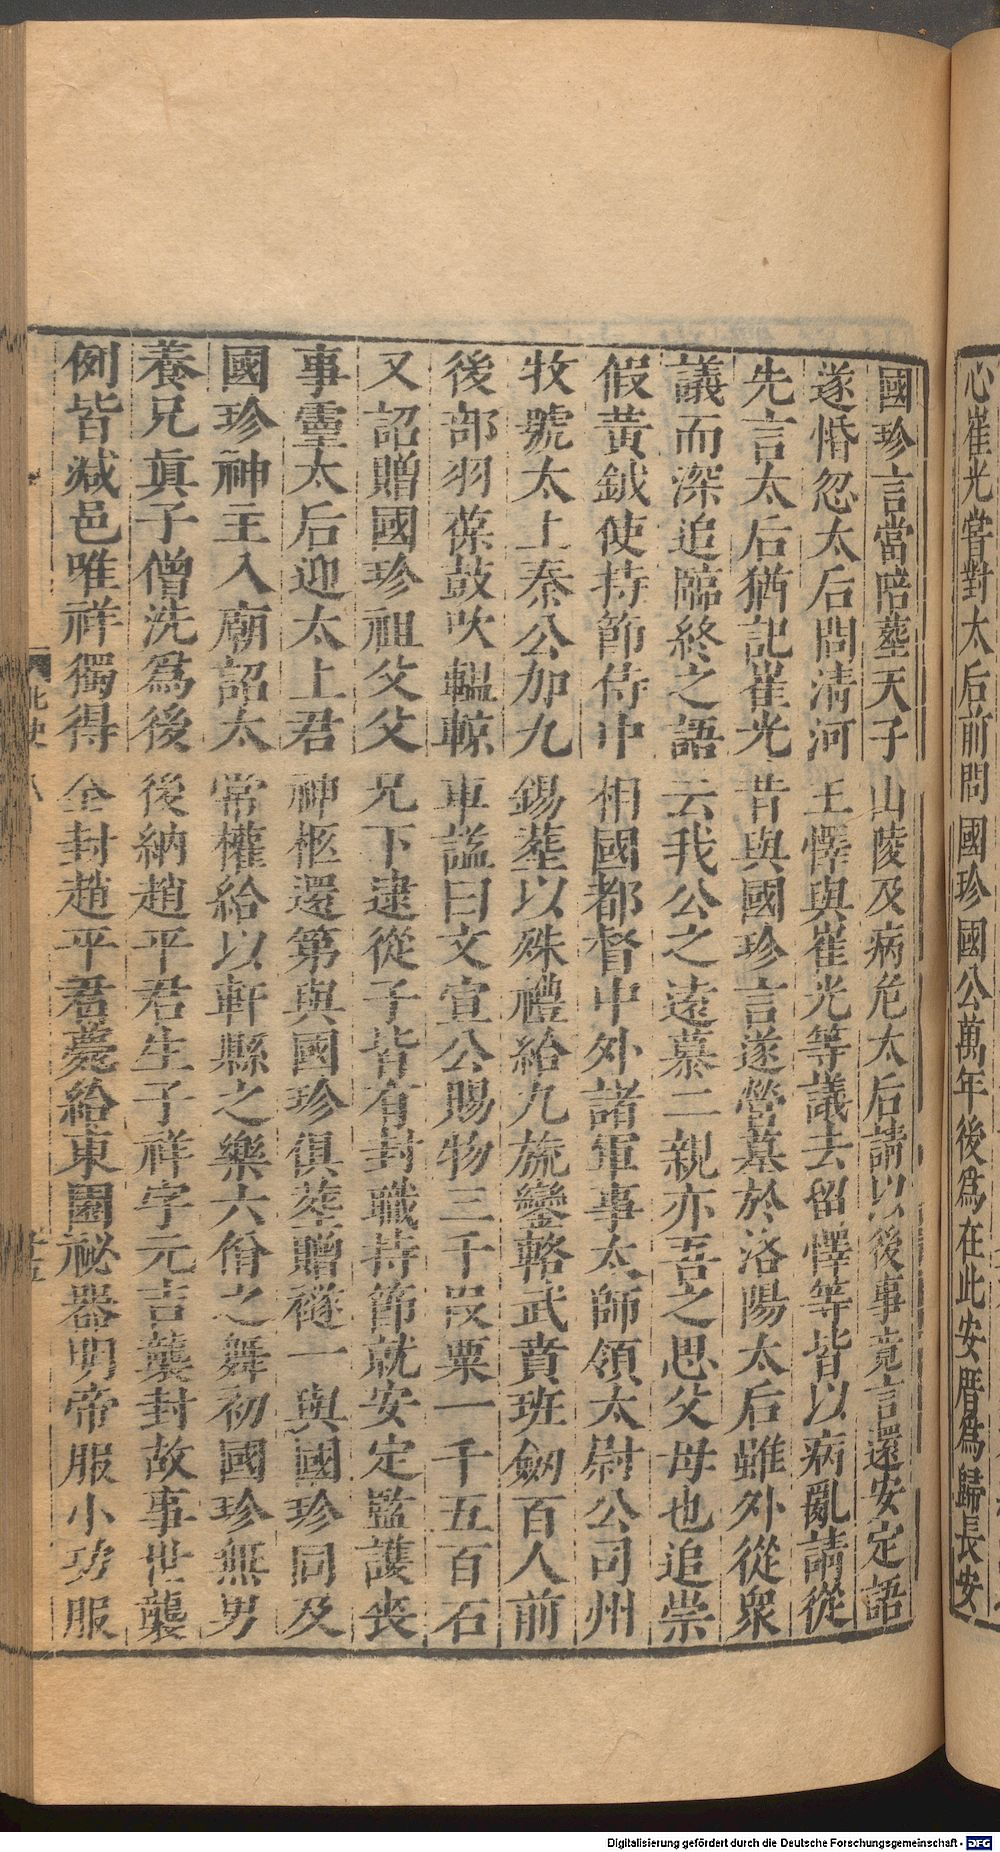 心崔光嘗對太后前問國珍國公萬年後爲在此安厝爲歸長安
國珍言當陪葬天子山陵及病危太后請以後事竟言還安定語
遂惛忽太后問清河王懌與崔光等議去留懌等皆以病亂請從
先言太后猶記崔光昔與國珍言遂營墓於洛陽太后雖外從衆
議而深追臨終之語云我公之遠慕二親亦吾之思父母也追崇
假黃鉞使持節侍中相國都督中外諸軍事太師領太尉公司州
牧號太上秦公加九錫葬以殊禮給九旒鑾輅武賁班劒百人前
後部羽葆鼓吹轀輬車謚曰文宣公賜物三千段粟一千五百石
又詔贈國珍祖父父兄下逮從子皆有封職持節就安定監護喪
事靈太后迎太上君神柩還第與國珍俱葬贈襚一與國珍同及
國珍神主入廟詔太常權給以軒縣之樂六佾之舞初國珍無男
養兄眞子僧洗爲後後納趙平君生子祥字元吉襲封故事世襲
例皆減邑唯祥獨得全封趙平君薨給東園祕器明帝服小功服
北史
Digitalisierung gefördert durch die Deutsche Forschungsgemeinschaft - DFG